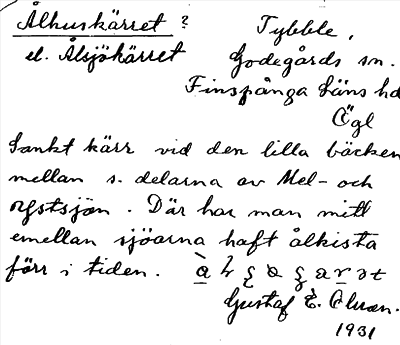 Ålhuskärret? Tybble,
el. Ålsjökärret Godegårds sn.
Finspånga läns hd
Ögl
Sankt kärr vid den lilla bäcken
mellan s. delarna av Mel- och
Ogstsjön. Där har man mitt
emellan sjöarna haft ålkista
förr i tiden.
Gustaf E.
1931